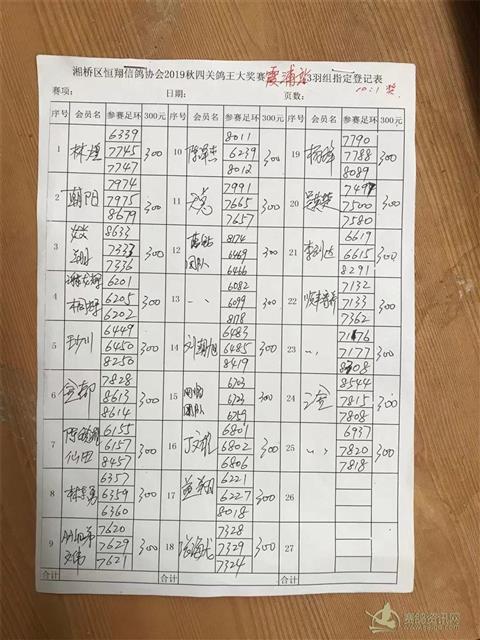 湘桥区恒翔信鸽协会2019秋四关鸽王大奖赛 霞浦站 3羽组指定登记表
赛项： 日期： 页数： 10:1 奖
序号 会员名 参赛足环 300元 序号 会员名 参赛足环 300元 序号 会员名 参赛足环 300元
1 林煌 6339 7745 7747 300 10 8011 6239 8012 300 19 7790 7788 8089 300
2 朝阳 7974 7975 8679 300 11 7991 7665 7657 300 20 7497 7500 7580 300
3 8633 7333 7336 300 12 团队 8174 6469 6466 300 21 李剑达 6619 6615 8291 300
4 6201 6205 6202 300 13 〃 6082 6099 8178 300 22 7132 7133 7362 300
5 6449 6450 8250 300 14 刘朝旭 6483 6485 8419 300 23 〃 7176 7177 8308 300
6 7828 8613 8614 300 15 团队 6703 6723 6759 300 24 8544 7815 7808 300
7 仙田 6155 6157 8457 300 16 丁文龙 6801 6802 6806 300 25 〃 6937 7820 7818 300
8 林志勇 6357 6359 6360 300 17 6221 6227 8018 300 26
9 AA兄弟 7620 7629 7621 300 18 7328 7329 7324 300 27
合计 合计 合计
赛鸽资讯网